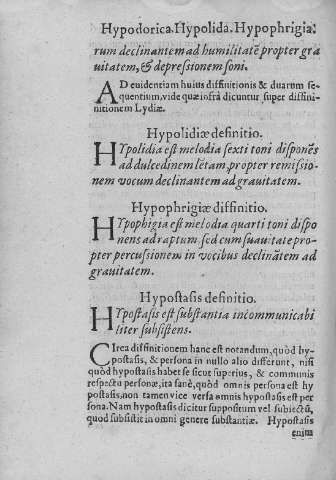 Hypodorica. Hypolida. Hypophrigia.
rum declinantem ad humilitatẽ propter gra
uitatem, & depressionem soni.
AD euidentiam huius diffinitionis & duarum se-
quentium, vide quæ infrà dicuntur super diffini-
nitionem Lydiæ.
Hypolidiæ definitio.
HYpolidia est melodia sexti toni disponẽs
ad dulcedinem lętam, propter remissio-
nem vocum declinantem ad grauitatem.
Hypophrigiæ diffinitio.
HYpophigia est melodia quarti toni dispo
nens ad raptum sed cum suauitate pro-
pter percussionem in vocibus declinãtem ad
grauitatem.
Hypostasis definitio.
HYpostasis est substantia incommunicabi
liter subsistens.
CIrca diffinitionem hanc est notandum, quòd hy-
postasis, & persona in nullo alio differunt, nisi
quòd hypostasis habet se sicut superius, & communis
respectu personæ, ita sanè, quòd omnis persona est hy
postasis, non tamen vice versa omnis hypostasis est per
sona. Nam hypostasis dicitur suppositum vel subiectũ,
quod subsistit in omni genere substantiæ. Hypostasis
enim